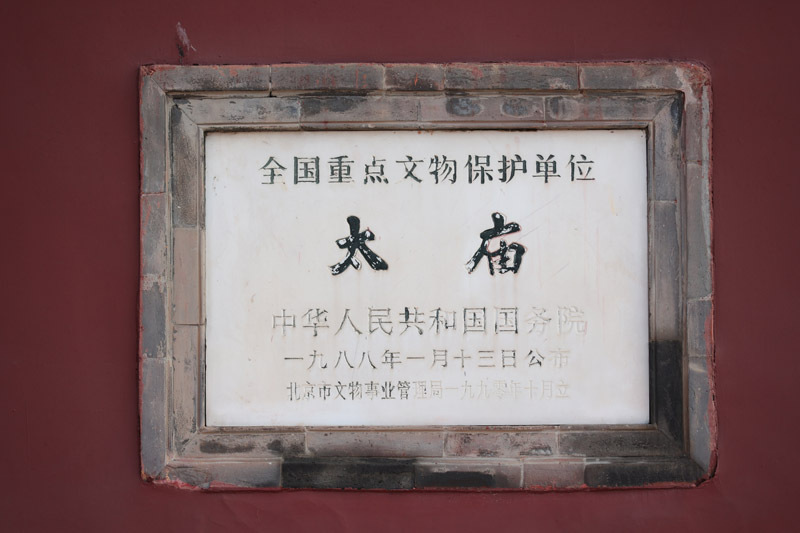 全国重点文物保护单位
太庙
中华人民共和国国务院
一九八八年一月十三日公布
北京市文物事业管理局一九九零年十月立